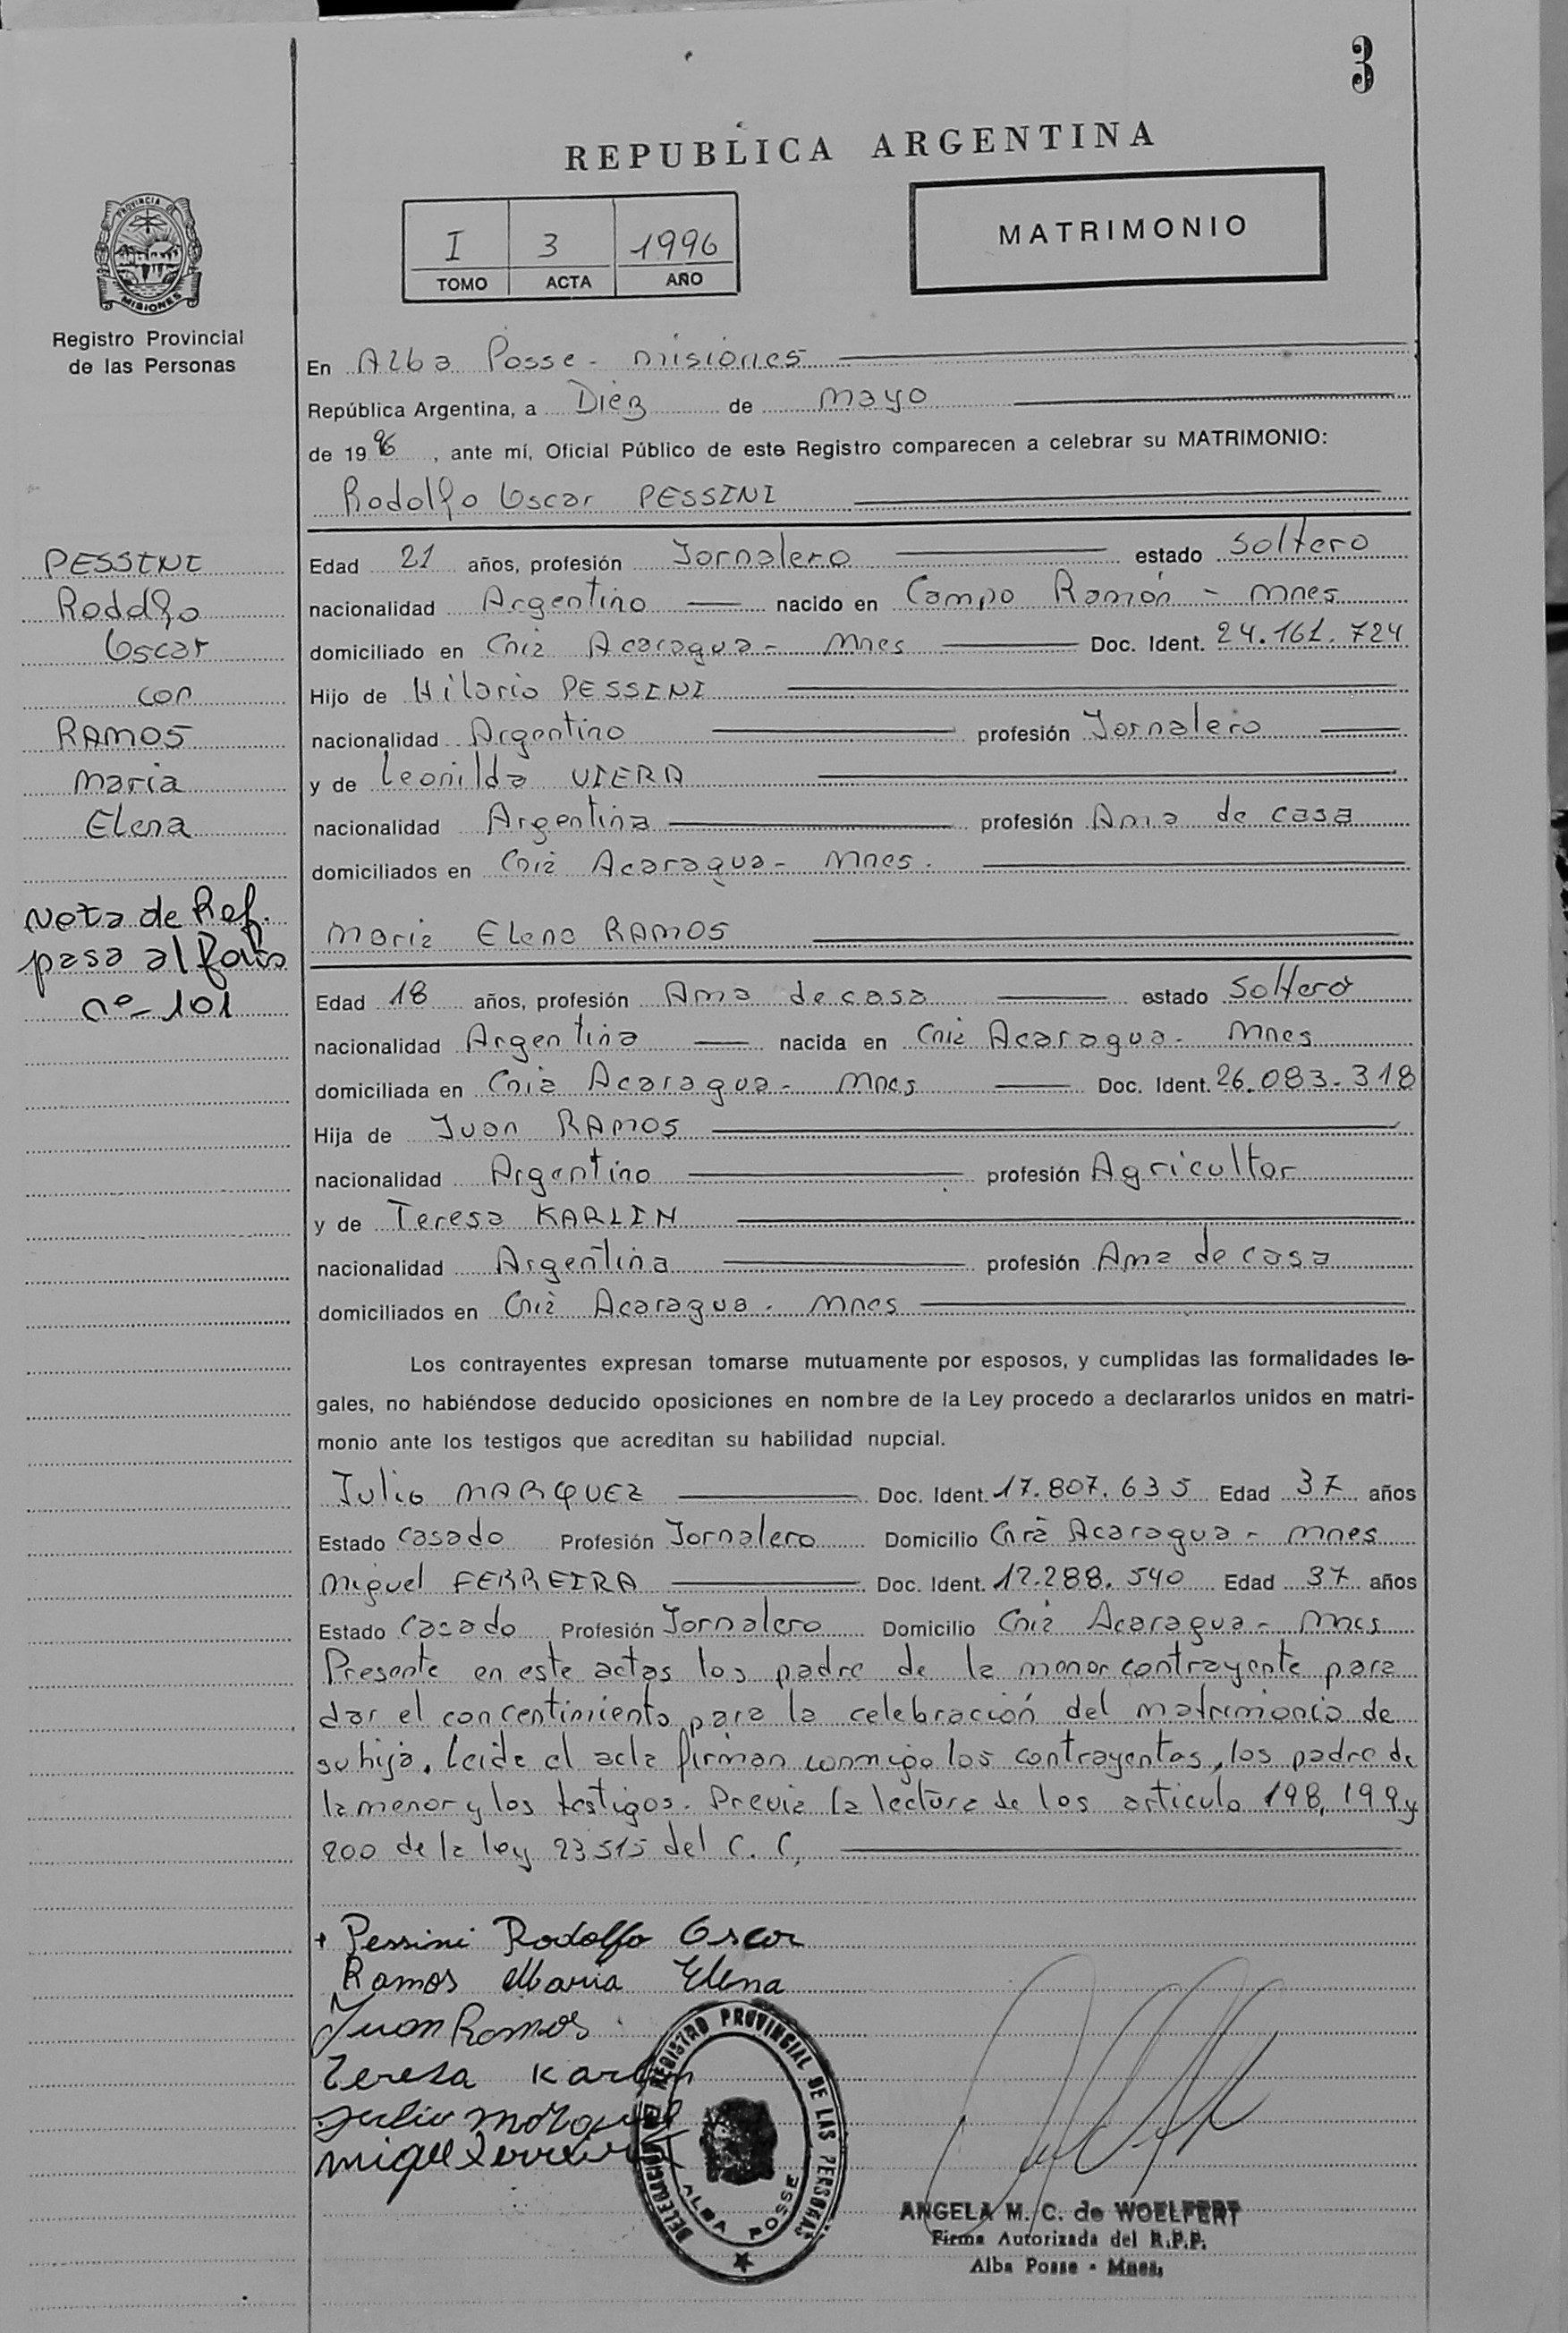 3
REPUBLICA ARGENTINA
PROVINCIA DE
MISIONES
Registro Provincial
de las Personas
I 3 1996
TOMO ACTA AÑO
MATRIMONIO
En Alba Posse - Misiones
República Argentina, a Diez de Mayo
de 1996, ante mí, Oficial Público de este Registro comparecen a celebrar su MATRIMONIO:
Rodolfo Oscar PESSINI
PESSINI
Rodolfo
Oscar
con
RAMOS
Maria
Elena
Nota de Ref.
pasa al folio
nº 101
Edad 21 años, profesión Jornalero estado Soltero
nacionalidad Argentino nacido en Campo Ramón - Mnes
domiciliado en Cnia Acaragua - Mnes Doc. Ident. 24.161.724
Hijo de Hilario PESSINI
nacionalidad Argentino profesión Jornalero
y de Leonilda VIERA
nacionalidad Argentina profesión Ama de casa
domiciliados en Cnia Acaragua - Mnes.
Maria Elena RAMOS
Edad 18 años, profesión Ama de casa estado Soltera
nacionalidad Argentina nacida en Cnia Acaragua - Mnes
domiciliada en Cnia Acaragua - Mnes Doc. Ident. 26.083.318
Hija de Juan RAMOS
nacionalidad Argentino profesión Agricultor
y de Teresa KARLIN
nacionalidad Argentina profesión Ama de casa
domiciliados en Cnia Acaragua - Mnes
Los contrayentes expresan tomarse mutuamente por esposos, y cumplidas las formalidades le-
gales, no habiéndose deducido oposiciones en nombre de la Ley procedo a declararlos unidos en matri-
monio ante los testigos que acreditan su habilidad nupcial.
Julio MARQUEZ Doc. Ident. 17.807.635 Edad 37 años
Estado Casado Profesión Jornalero Domicilio Cnia Acaragua - Mnes
Miguel FERREIRA Doc. Ident. 17.288.540 Edad 37 años
Estado Casado Profesión Jornalero Domicilio Cnia Acaragua - Mnes
Presente en este actas los padre de la menor contrayente para
dar el concentimiento para la celebración del matrimonio de
su hija. Leida el acta firman conmigo los contrayentes, los padre de
la menor y los testigos. Previa la lectura de los articulo 198, 199 y
200 de la ley 23515 del C. C.
+ Pessini Rodolfo Oscar
Ramos Maria Elena
Juan Ramos
Teresa Karlin
Julio Marquez
DELEGACION REGISTRO PROVINCIAL DE LAS PERSONAS
ALBA POSSE
ANGELA M. C. de WOELFERT
Firma Autorizada del R.P.P.
Alba Posse - Mnes.